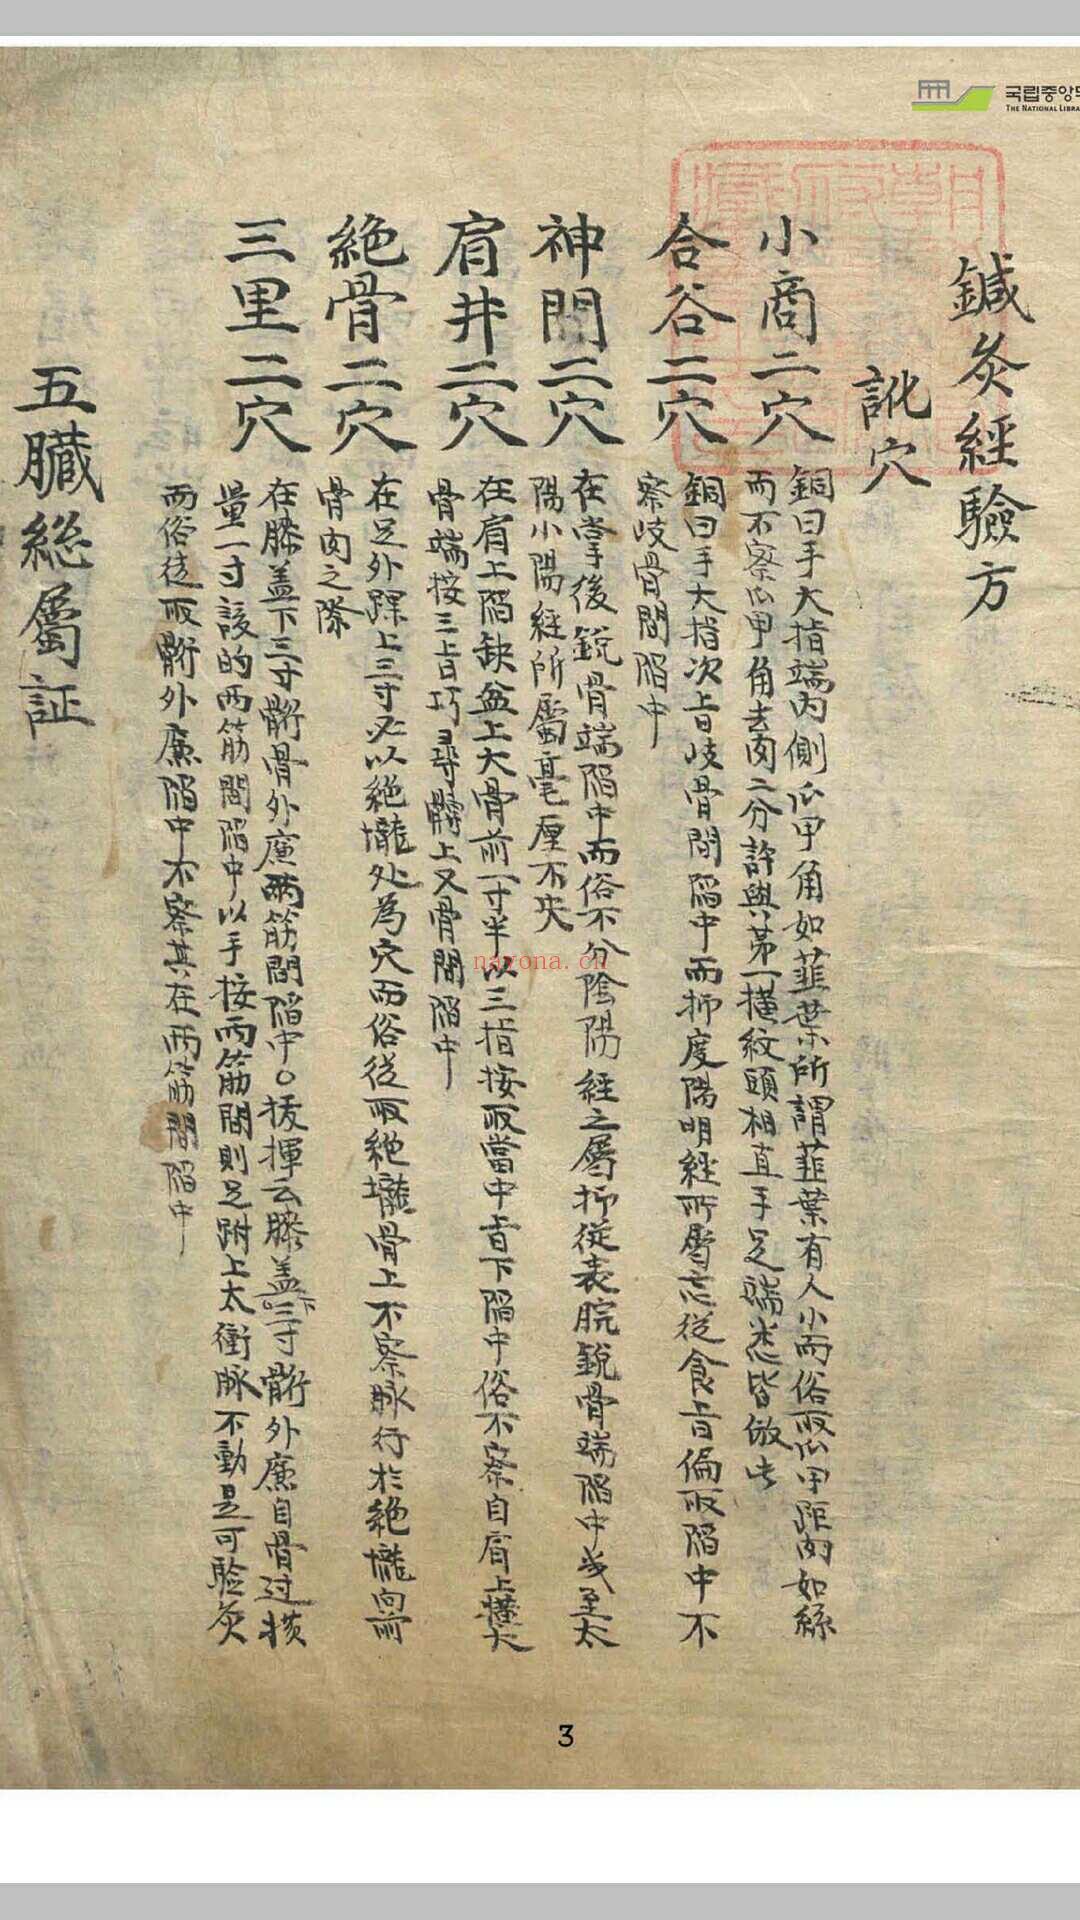 국립중앙도
THE NATIONAL LIBRA
鍼灸經驗方
訛穴
小商二穴
銅曰手大指端內側爪甲角如韮葉所謂韮葉有人小而俗取爪甲距肉如絲
而不察爪甲角去肉二分許與第一橫紋頭相直手足端悉皆倣此
合谷二穴
銅曰手大指次旨歧骨間陷中而抑度陽明經所屬忘從食旨偏取陷中不
察歧骨間陷中
神門二穴
在掌後銳骨端陷中而俗不分陰陽經之屬抑従表脘銳骨端陷中或至太
陽小陽経所屬毫厘不失
肩井二穴
在肩上陷缺盆上大骨前一寸半以三指按取當中旨下陷中俗不察自肩上橫大
骨端按三旨巧尋髃上叉骨間陷中
絶骨二穴
在足外踝上三寸必以絶壠处為穴而俗従取絶壠骨上不察脉行於絶壠向前
骨肉之際
三里二穴
在膝盖下三寸䯒骨外廉兩筋間陷中○扳揮云膝盖下三寸䯒外廉自骨过橫
量一寸該的兩筋間陷中以手按兩筋間則足跗上太衝脉不動是可騐灸
而俗徒取䯒外廉陷中不察其在兩筋間陷中
五臟総屬証
nayona.cn
3